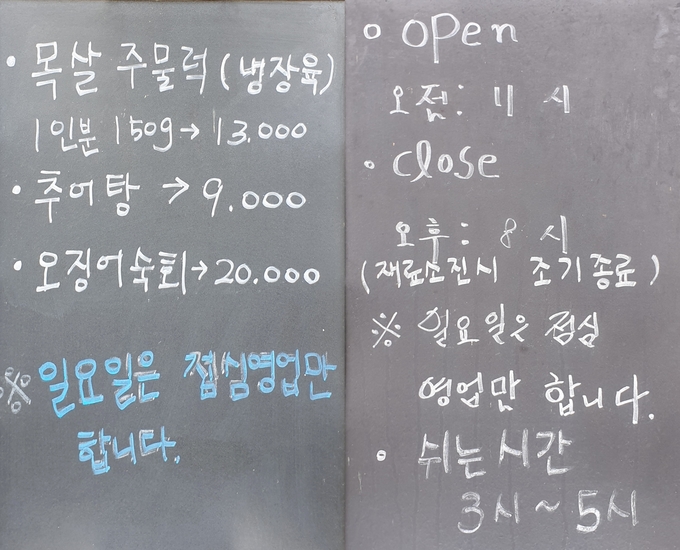 • 목살 주물럭 (냉장육)
1인분 150g → 13.000
• 추어탕 → 9.000
• 오징어숙회 → 20.000
※ 일요일은 점심영업만
합니다.
• open
오전: 11 시
• close
오후: 8 시
(재료소진시 조기종료)
※ 일요일은 점심
영업만 합니다.
• 쉬는시간
3시 ~ 5시